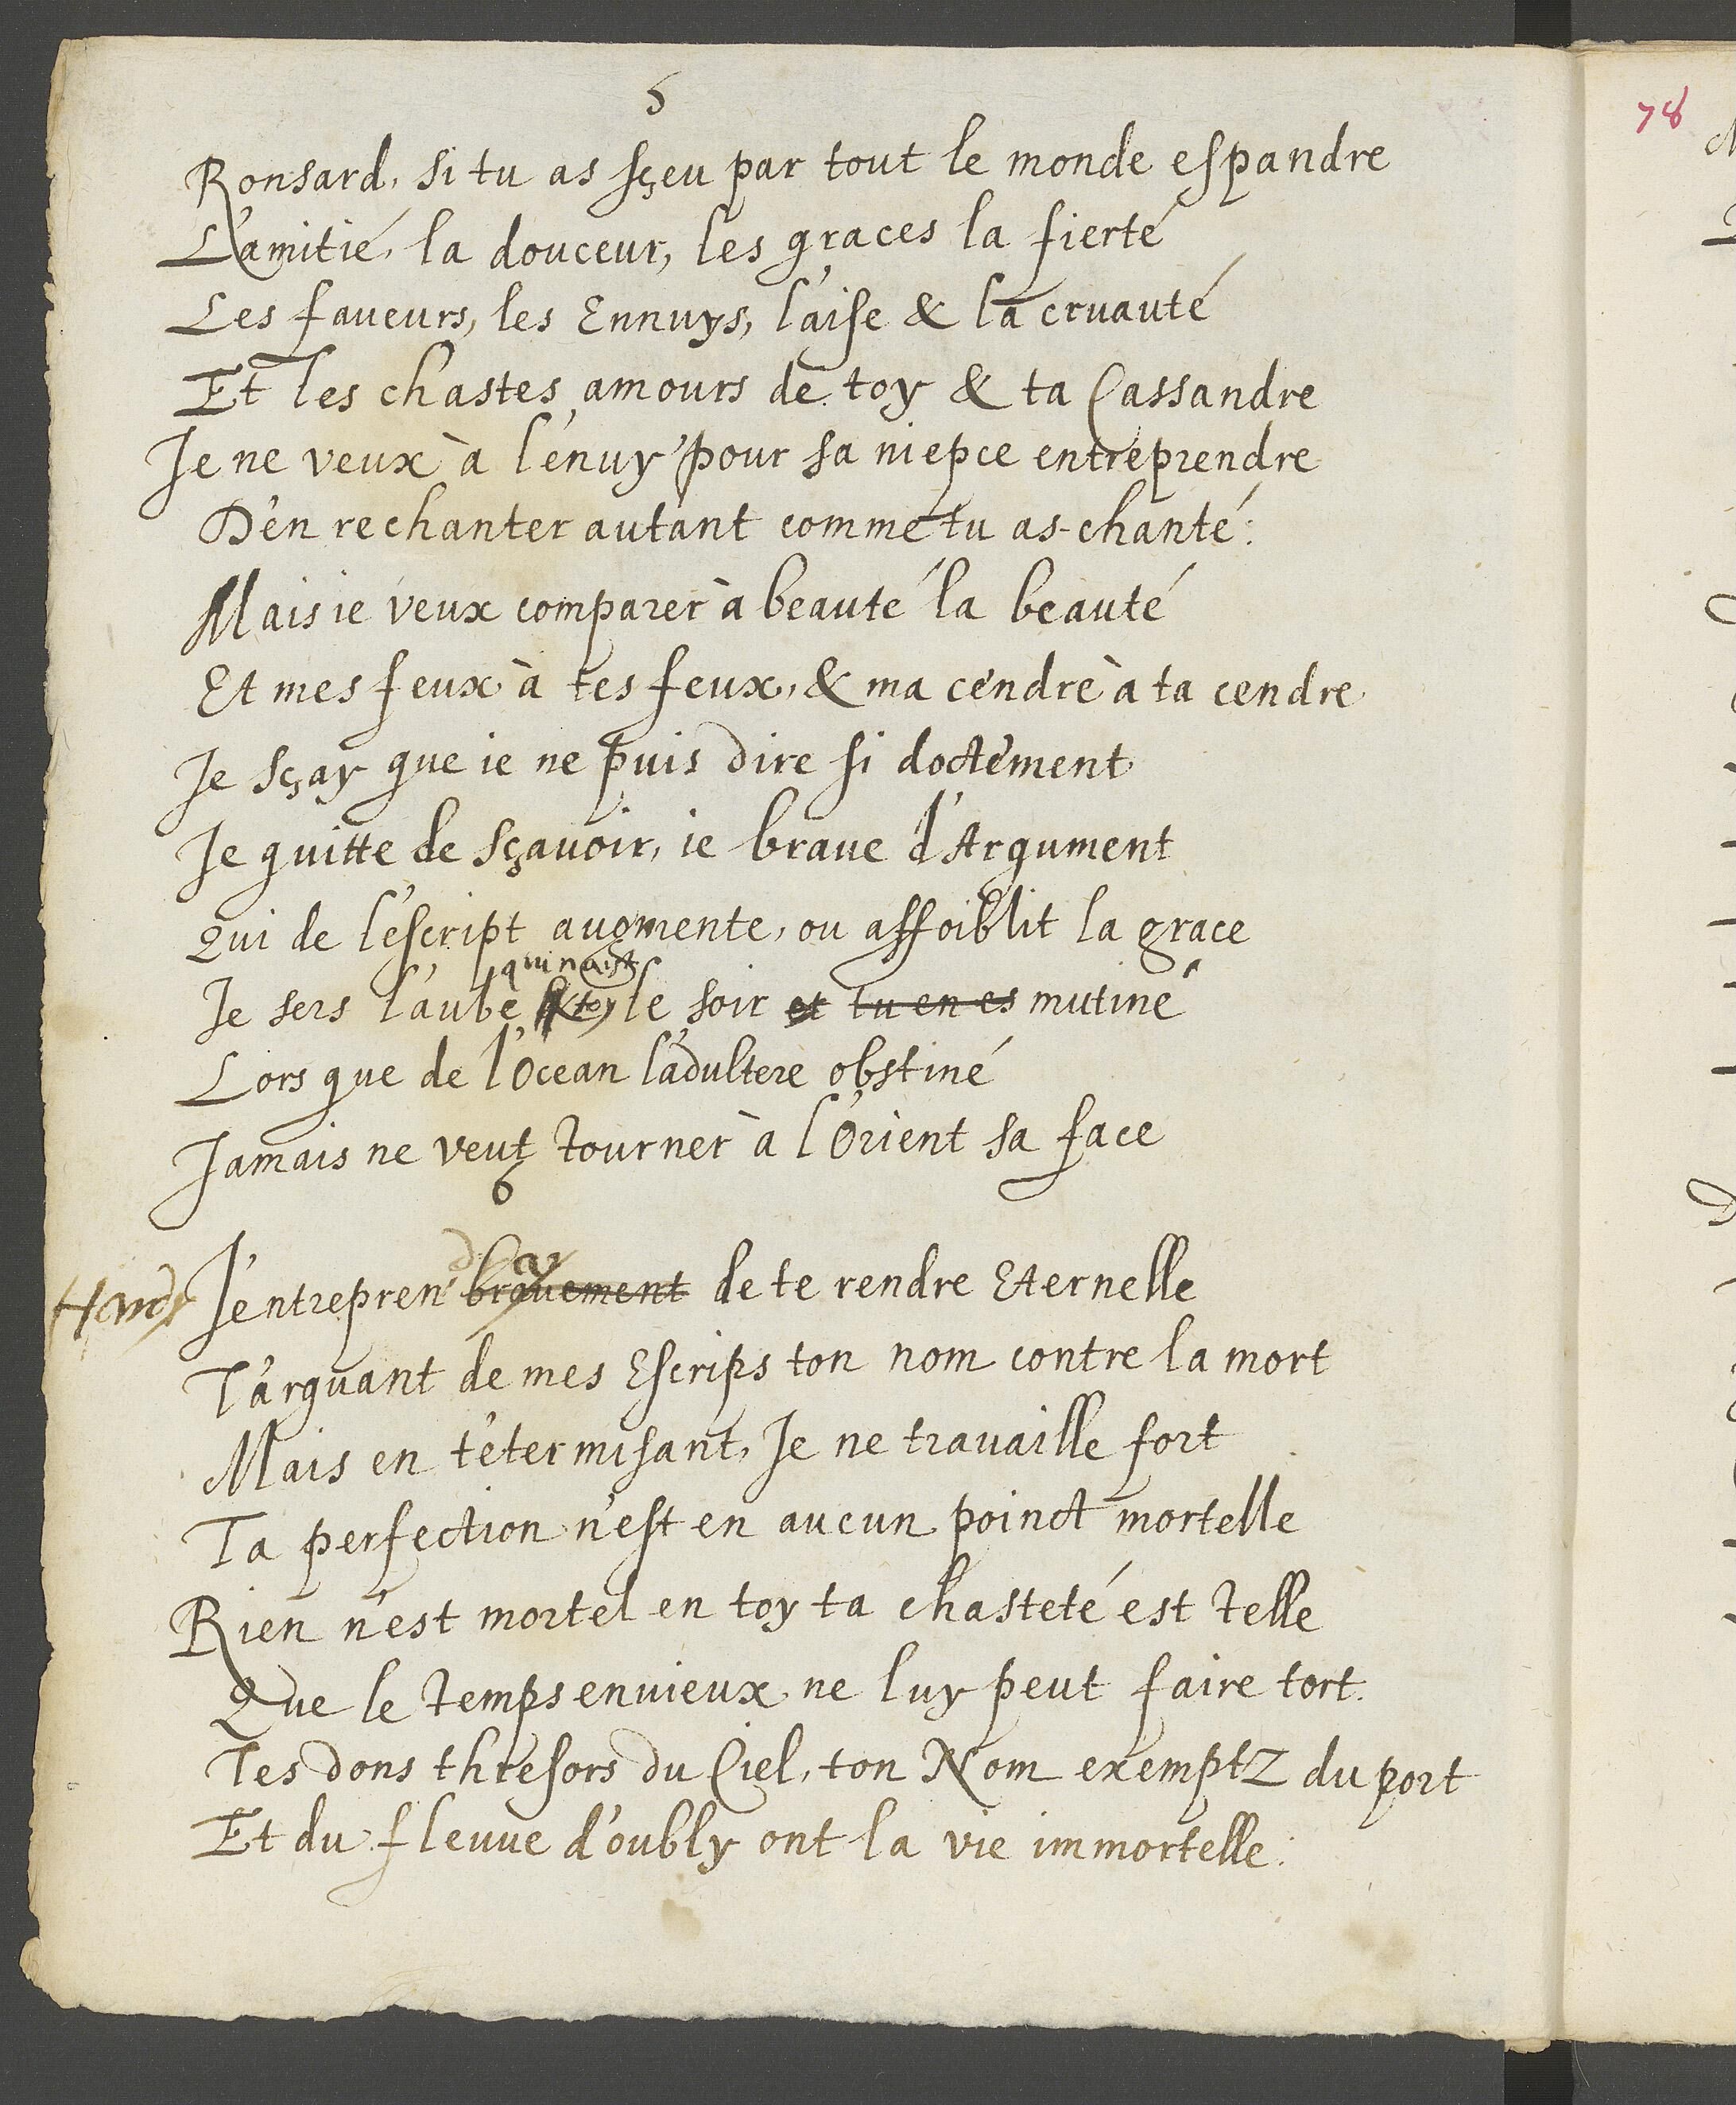 5
Ronsard, si tu as sçeu par tout le monde espandre
L'amitié, la douceur, les graces la fierté
Les faveurs, les Ennuys, l'aise & la cruauté
Et les chastes amours de toy & ta Cassandre
Je ne veux à l'enuy pour sa niepce entreprendre
D'en rechanter autant comme tu as chanté:
Mais ie veux comparer à beauté la beauté
Et mes feux à tes feux, & ma cendre à ta cendre
Je sçay que ie ne puis dire si doctement
Je quitte de sçavoir, ie brave d'Argument
Qui de l'escript augmente, ou affoiblit la grace
qui naist
Je sers l'aube & toy le soir et tu en es mutiné
Lors que de l'Ocean l'adultere obstiné
Jamais ne veut tourner à l'Orient sa face
6
Hardy J'entrepren bravement de te rendre Eternelle
T'arquant de mes Escrips ton nom contre la mort
Mais en t'eternisant, Je ne travaille fort
Ta perfection n'est en aucun poinct mortelle
Rien n'est mortel en toy ta chasteté est telle
Que le temps envieux ne luy peut faire tort.
Tes dons thresors du Ciel, ton Nom exemptz du port
Et du fleuve d'oubly ont la vie immortelle:
78